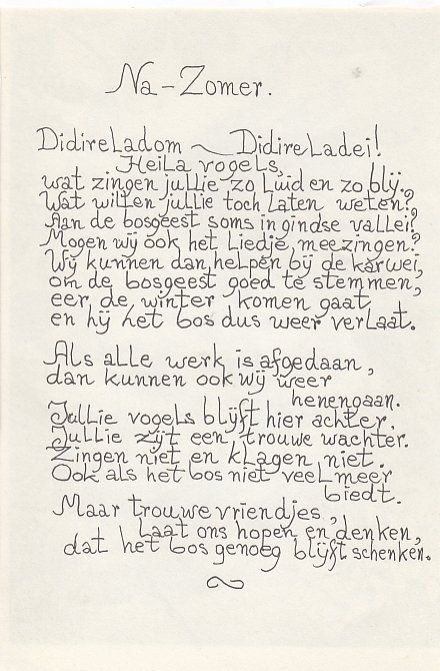 Na-Zomer.
DidireLadom ~ DidireLadei!
HeiLa vogels,
wat zingen jullie zo Luid en zo blij.
Wat willen jullie toch Laten weten?
Aan de bosgeest soms in gindse vallei?
Mogen wij ook het Liedje meezingen?
Wij kunnen dan helpen bij de karwei,
om de bosgeest goed te stemmen,
eer de winter komen gaat
en hij het bos dus weer verLaat.
Als alle werk is afgedaan,
dan kunnen ook wij weer
henengaan.
Jullie vogels blijft hier achter.
Jullie zijt een trouwe wachter.
Zingen niet en kLagen niet.
Ook als het bos niet veeL meer
biedt.
Maar trouwe vriendjes,
Laat ons hopen en denken,
dat het bos genoeg blijft schenken.